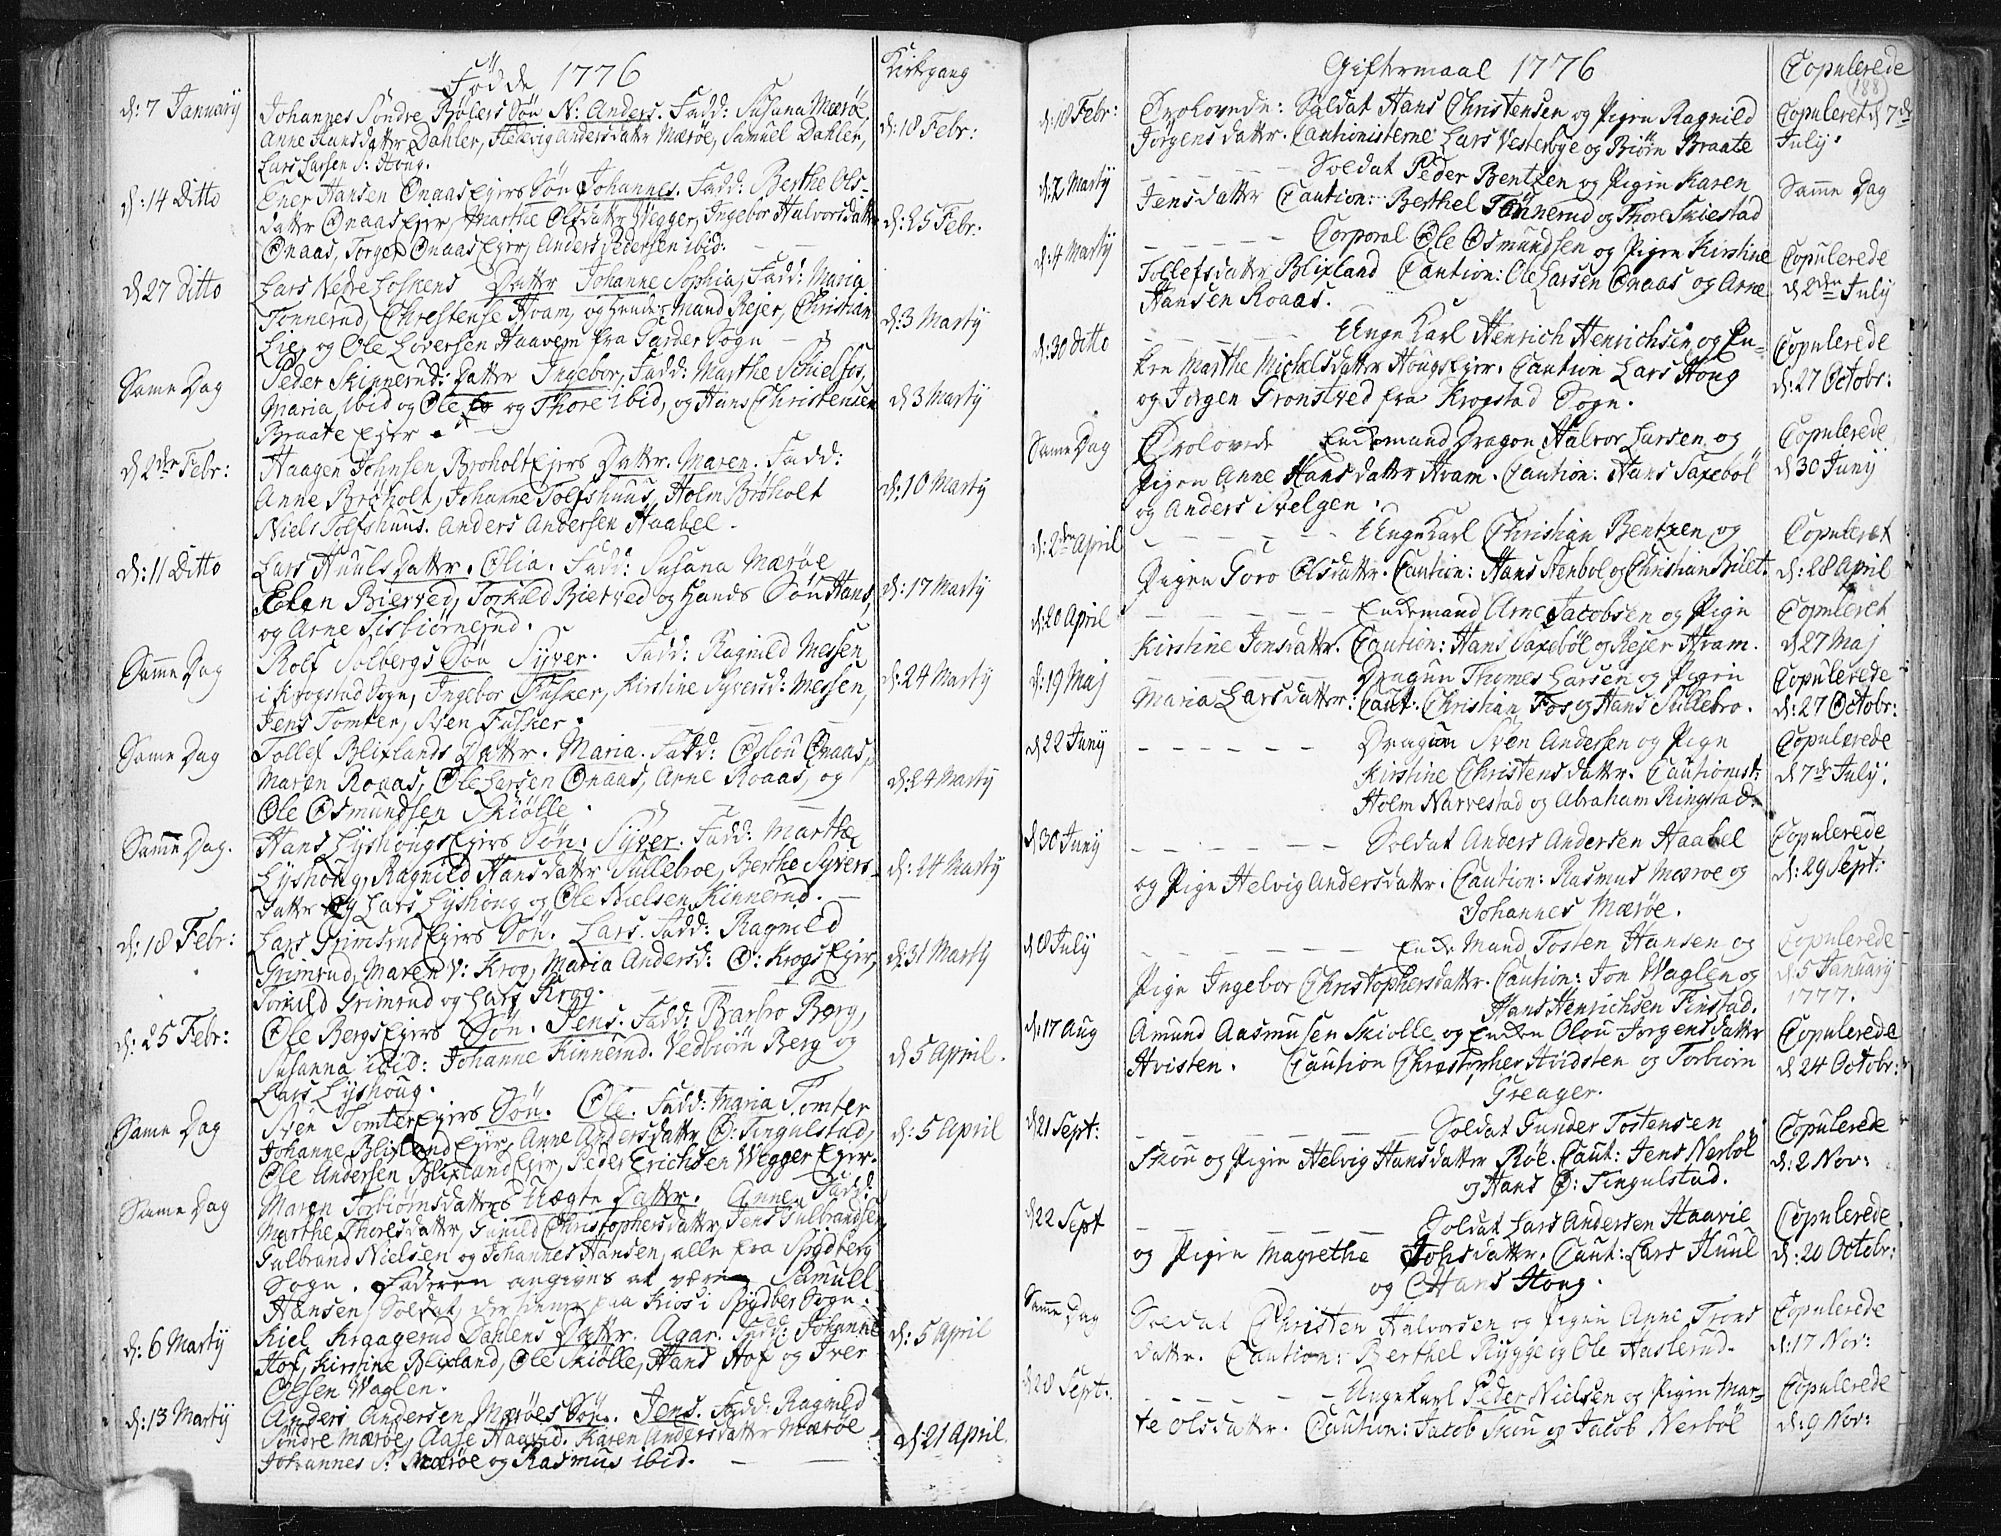 Födde 1776
Kirkgang
d: 7 January
Johannes Söndre Bölers Sön N: Anders. Fadd: Susana Mærøe,
Anne Hansdatter Dahler, Hellevig Andersdattr Mærøe, Samuel Dahler,
Lars Larsen S: Hong.
d: 18 Febr:
d: 14 Ditto
Ener Hansen Onaas Ejers Sön Johannes. Fadd: Berthe Ols-
datter Onaas Ejer, Marthe Olsdattr Vegger, Ingebor Halvorsdattr
Onaas, Torger Onaas Ejer, Anders Pedersen ibid.
d: 25 Febr:
d 27 Ditto
Lars Nedre Loskens Dattr Johanne Sophia, Fadd: Maria
Tonnerud, Chrestense Hvam, og hendes Mand Rejer, Christian
Lie, og Ole Löversen Haavem fra Garder Sogn
d: 3 Marty
Same Dag
Peder Skinnerud: Datter Ingebor, Fadd: Marthe Schielfos,
Maria ibid og Ole og Thore ibid, og Hans Christensen
Braate Ejer.
d 3 Marty
d 2den Febr:
Haagen Johnsen Broholt Ejers Dattr. Maren. Fadd:
Anne Bröholt, Johanne Tolfshuus, Holm Bröholt
Niels Tolfshuus. Anders Andersen Haabel.
d: 10 Marty
d: 11 Ditto
Lars Huuls Dattr. Olia. Fadd: Susana Mærøe
Elen Bierved, Torkild Bierved og hands Sön Hans,
og Arne Sisbiörnerud.
d: 17 Marty
Same Dag
Rolf Solbergs Sön Syver. Fadd: Ragnild Messen
i Krogstad Sogn, Ingebor Fusker, Kirstine Syversd: Messen,
Jens Tomter, Sven Fusker.
d: 24 Marty
Same Dag
Tollef Blixlands Dattr. Maria. Fadd: Oslou Onaas,
Maren Roaas, Ole Larsen Onaas, Arne Roaas, og
Ole Osmundsen Skiölle.
d: 24 Marty
Samme Dag.
Hans Lyshougs Ejers Sön: Syver. Fadd: Marthe
Lyshoug, Ragnild Hansdattr Sullebroe, Berthe Syvers-
datter Lars Lyshoug og Ole Nielsen Kinnerud.
d: 24 Marty
d: 18 Febr:
Lars Grimsrud Ejers Sön. Lars. Fadd: Ragnild
Grimsrud, Maren V: Krog, Maria Andersd: O: Krogs Ejer,
Torkild Grimsrud og Lars Krog.
d: 31 Marty
d: 25 Febr:
Ole Bergs Ejers Sön. Jens. Fadd: Barbro Berg,
Susanna ibid: Johanne Kinnerud. Vedbiörn Berg og
Lars Lyshoug.
d 5 April.
Same Dag
Sven Tomter Ejers Sön. Ole. Fadd: Maria Tomter
Johanne Blixland Ejer, Anne Andersdattr O: Tingulstad,
Ole Andersen Blixland Ejer, Peder Erichsen Vegger Ejer.
d: 5 April
Same Dag
Maren Torbiörnsdatters Uægte Datter. Anne. Fadd:
Marthe Thoresdattr, Gunild Christophersdattr, Jens Gulbrandsen
Gulbrand Nielsen og Johannes Hansen, alle fra Spydberg
Sogn. Faderen angives at være Samuel
Hansen Soldat, der tiener paa Kios i Spydber Sogn.
d: 6 Marty
Kiel Kraagerud Dahlens Dattr. Agar. Fadd: Johanne
Hof, Kirstine Blixland, Ole Skiölle, Hans Hof og Iver
Olesen Waglen.
d: 5 April
d: 13 Marty
Anders Andersen Mærøes Sön. Jens. Fadd: Ragnild
Söndre Mærøe, Aase Haavid. Karen Andersdattr Mærøe
Johannes S: Mærøe og Rasmus ibid.
d: 21 April.
Giftermaal 1776
Copulerede
188
d: 18 Febr:
Trolovede: Soldat Hans Christensen og Pigen Ragnild
Jörgensdattr. Cautionisterne Lars Vestebye og Biörn Braate
Copuleret d 7de
July.
d: 2 Marty
Soldat Peder Bentzen og Pigen Karen
Jensdattr Caution: Berthel Tönnerud og Thore Skiestad
Samme Dag
d: 4 Marty
Corporal Ole Osmundsen og Pigen Kirstine
Tollefsdattr Blixland Caution: Ole Larsen Onaas og Arne
Hansen Roaas.
Copulerede
d 2den July
d: 30 Ditto
Unge Karl Henrich Henrichsen og En-
ken Marthe Michelsdatter Hougs Ejer. Caution Lars Hong
og Jörgen Gronstved fra Krogstad Sogn.
Copulerede
d: 27 Octobr:
Same Dag
Trolovede Enkemand Dragon Halvor Larsen og
Pigen Anne Hansdattr Hvam. Caution: Hans Saxeböl
og Anders Svelgen.
Copulerede
d 30 Juny
d: 2den April
Unge Karl Christian Bentzen og
Pigen Goro Olsdattr. Caution: Hans Stenbol og Christian Bilet.
Copuleret
d: 28 April
d: 20 April
Enkemand Arne Jacobsen og Pige
Kirstine Jonsdattr. Caution: Hans Saxebøl og Rejer Hvam.
Copuleret
d 27 Maj
d: 19 Maj
Dragun Thomes Larsen og Pigen
Maria Larsdatter: Caut. Christian Fos og Hans Sullebro.
Copulerede
d: 27 Octobr:
d 22 Juny
Dragun Sven Andersen og Pige
Kirstine Christensdattr. Cautionist:
Holm Narvestad og Abraham Ringstad.
Copulerede
d 7de July.
d 30 Juny
Soldat Anders Andersen Haabel
og Pige Helvig Andersdattr. Caution: Rasmus Mærøe og
Johannes Mærøe.
Copulerede
d: 29 Sept:
d 8 July
Enke Mand Tosten Hansen og
Pige Ingebor Christophersdattr. Caution: Jon Waglen og
Hans Henrichsen Finstad.
Copulerede
d 5 January
1777.
d: 17 Aug
Amund Aasmusen Skiolle og Enken Olou Jörgensdattr
Hvisten. Caution Christopher Hvidsten og Torbiörn
Greager.
Copulerede
d 24 Octobr:
d 21 Sept:
Soldat Gunder Tostensen
Skou og Pigen Helvig Hansdatter Röe. Caut: Jens Nerböl
og Hans O: Tingulstad.
Copulerede
d: 2 Nov:
d 22 Sept
Soldat Lars Andersen Haavie
og Pigen Magrethe Johsdattr. Caut: Lars Huul
og Hans Hong.
Copulerede
d: 20 Octobr:
Samme Dag
Soldat Christen Halvorsen og Pigen Anne Trons
dattr. Caution: Berthel Rygge og Ole Haslerud.
Copulerede
d: 17 Nov:
d 28 Sept:
Unge Karl Peder Nielsen og Pigen Mar-
te Olsdattr. Caution: Jacob Skou og Jacob Nerböl
Copulerede
d: 9 Nov: